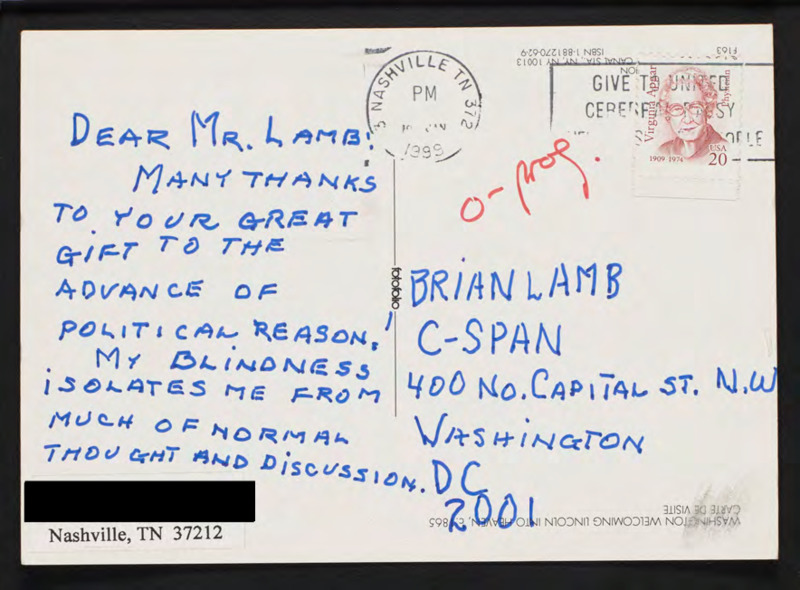 DEAR MR. LAMB!
MANY THANKS
TO YOUR GREAT
GIFT TO THE
ADVANCE OF
POLITICAL REASON.!
MY BLINDNESS
ISOLATES ME FROM
MUCH OF NORMAL
THOUGHT AND DISCUSSION.
Nashville, TN 37212
NASHVILLE TN 372
PM
1999
GIVE TO UNITED
CEREBRAL PALSY
o-prog.
Virginia Apgar
Physician
1909 1974
USA
20
fotofolio
BRIAN LAMB
C-SPAN
400 NO. CAPITAL ST. N.W
WASHINGTON
DC
2001
WASHINGTON WELCOMING LINCOLN INTO HEAVEN, C. 1865
CARTE DE VISITE
F163
CANAL STA. NY, NY 10013
ISBN 1-881270-62-9